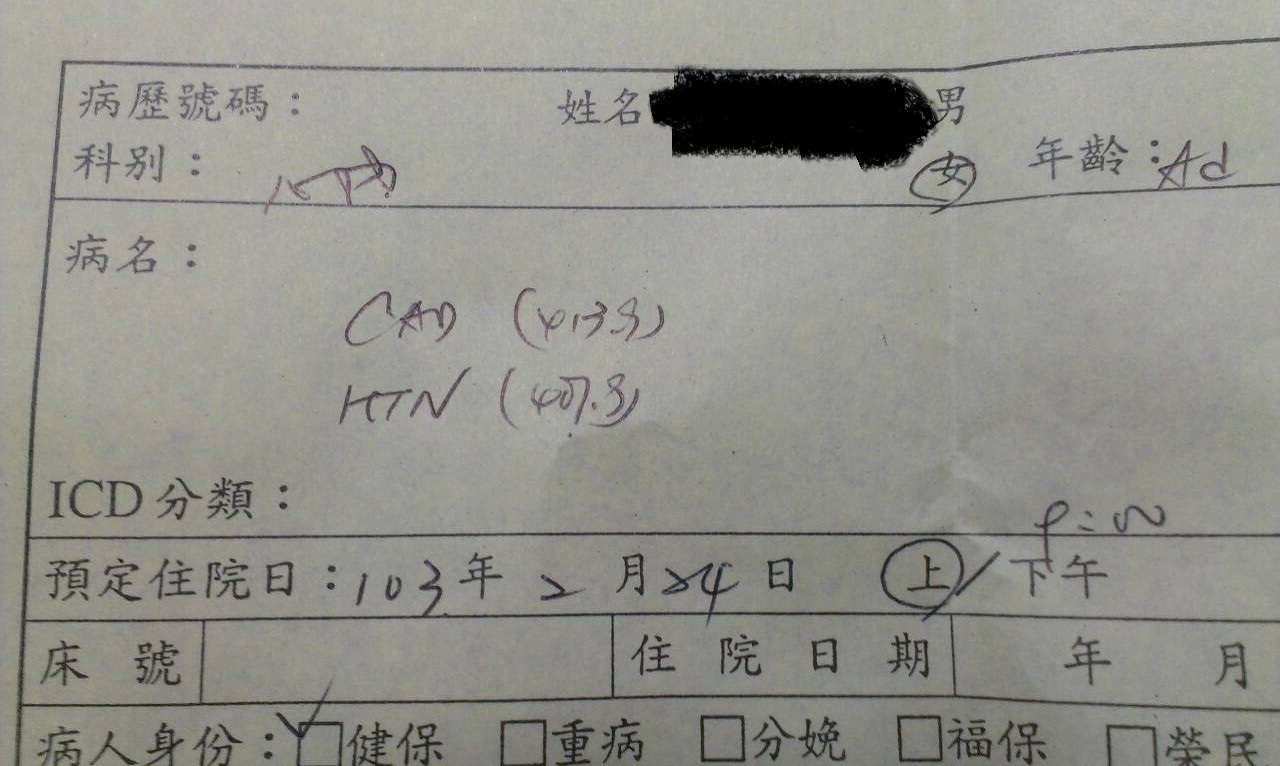 病歷號碼： 姓名 男
科別： 女 年齡：Ad
病名：
CAD (413.9)
HTN
ICD分類：
預定住院日：103年 2 月 24 日 上/下午
床 號 住 院 日 期 年 月
病人身份：□健保 □重病 □分娩 □福保 □榮民